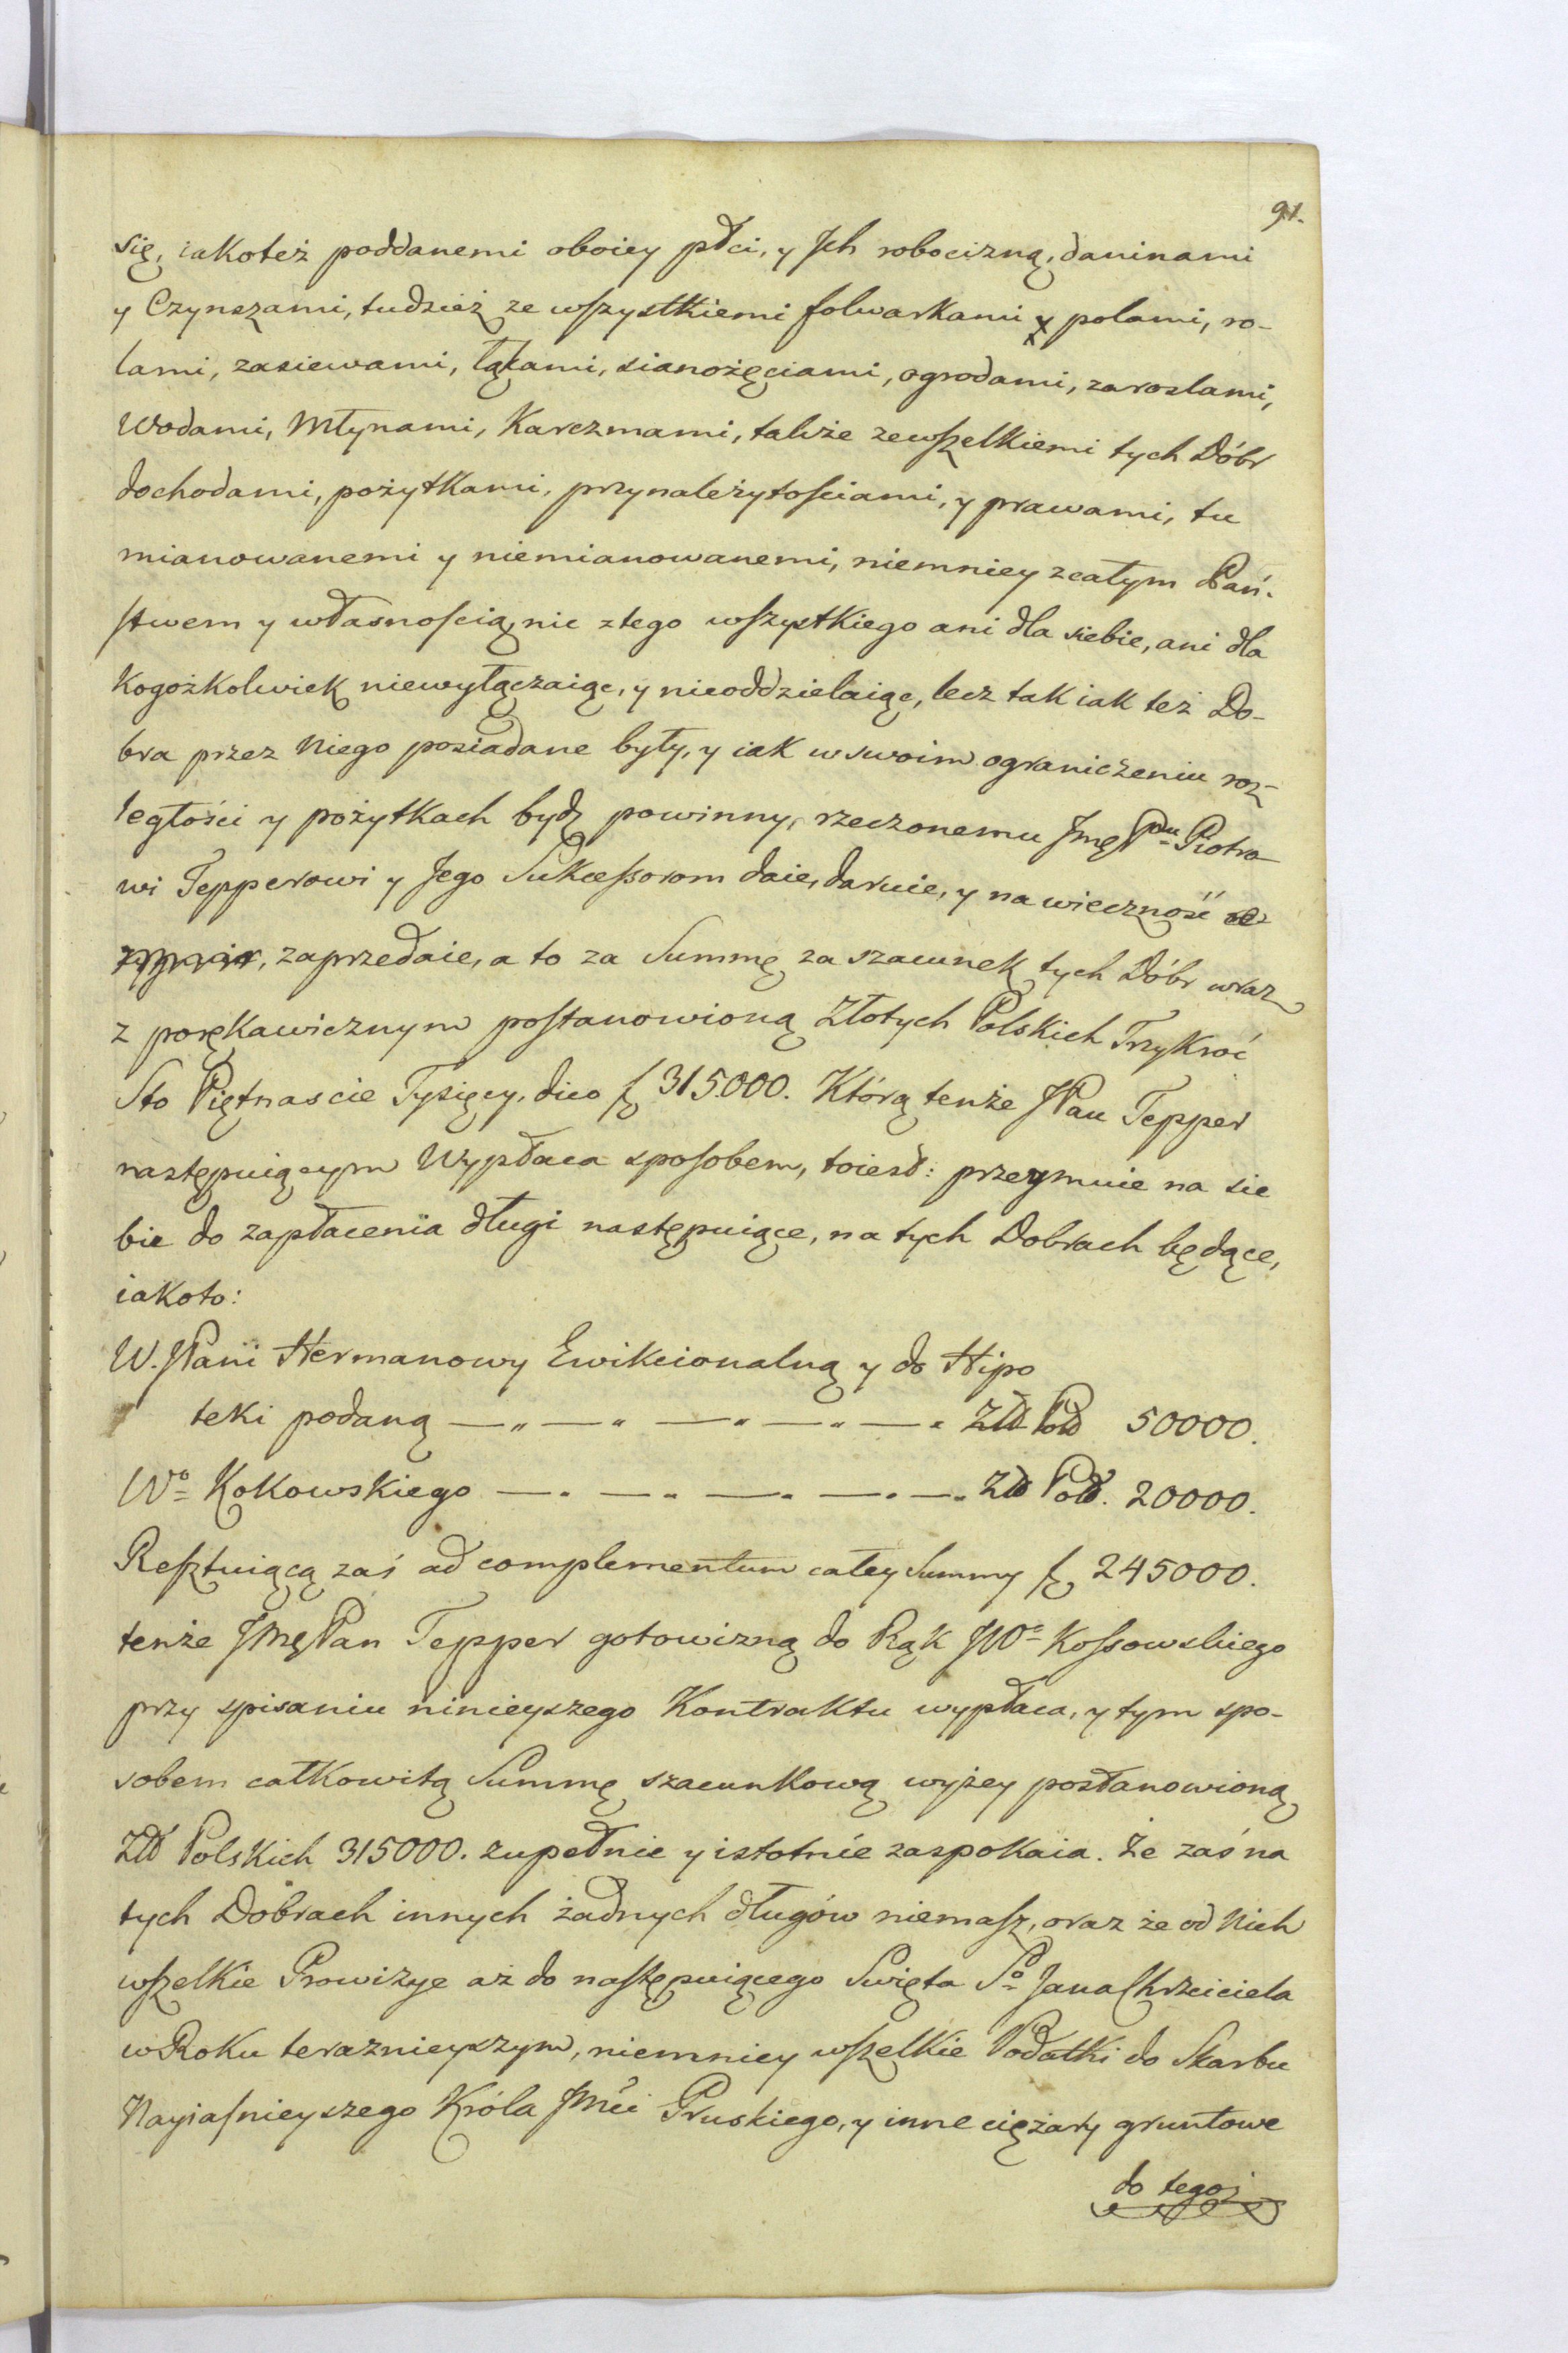 91.
się, iakoteż poddanemi oboiey płci, y Jch robocizną, daninami
y Czynszami, tudzież ze wszystkiemi folwarkami y polami, ro-
lami, zasiewami, łąkami, sianożęciami, ogrodami, zaroslami,
Wodami, Młynami, Karczmami, także zewszelkiemi tych Dóbr
dochodami, pożytkami, przynależytościami, y prawami, tu
mianowanemi y niemianowanemi, niemniey zcałym Pań-
stwem y własnością, nic ztego wszystkiego ani dla siebie, ani dla
kogożkolwiek niewyłączaiąc, y nieoddzielaiąc, lecz tak iak też Do-
bra przez Niego posiadane były, y iak w swoim ograniczeniu roz-
ległości y pożytkach bydź powinny, rzeczonemu Jmę Panu Piotro-
wi Tepperowi y Jego Sukcessorom daie, daruie, y na wieczność
zaprzedaie, a to za Summę za szacunek tych Dóbr wraz
z porękawicznym postanowioną Złotych Polskich Trzykroć
Sto Piętnascie Tysięcy, dico f. 315.000. Którą tenże JPan Tepper
następuiącym Wypłaca sposobem, toiest: przeymuie na sie
bie do zapłacenia długi następuiące, na tych Dobrach będące,
iakoto:
W. JPani Hermanowy Ewikcionalną y do Hipo
teki podaną — „ — „ — „ — „ — „ Zł Pol 50000.
Wo Kokowskiego — „ — „ — „ — „ — „ Zł Pol. 20000.
Resztuiącą zaś ad complementum całey Summy f. 245000.
tenże JmęPan Tepper gotowizną do Rąk JWo Kossowskiego
przy spisaniu ninieyszego Kontraktu wypłaca, y tym spo-
sobem całkowitą Summę szacunkową wyżey postanowioną
Zł Polskich 315000. zupełnie y istotnie zaspokaia. Że zaś na
tych Dobrach innych żadnych długów niemasz, oraz że od Nich
wszelkie Prowizye aż do następuiącego Swięta So Jana Chrzciciela
w Roku teraznieyszym, niemniey wszelkie Podatki do Skarbu
Nayiasnieyszego Króla Jmći Pruskiego, y inne ciężary gruntowe
do tegoż